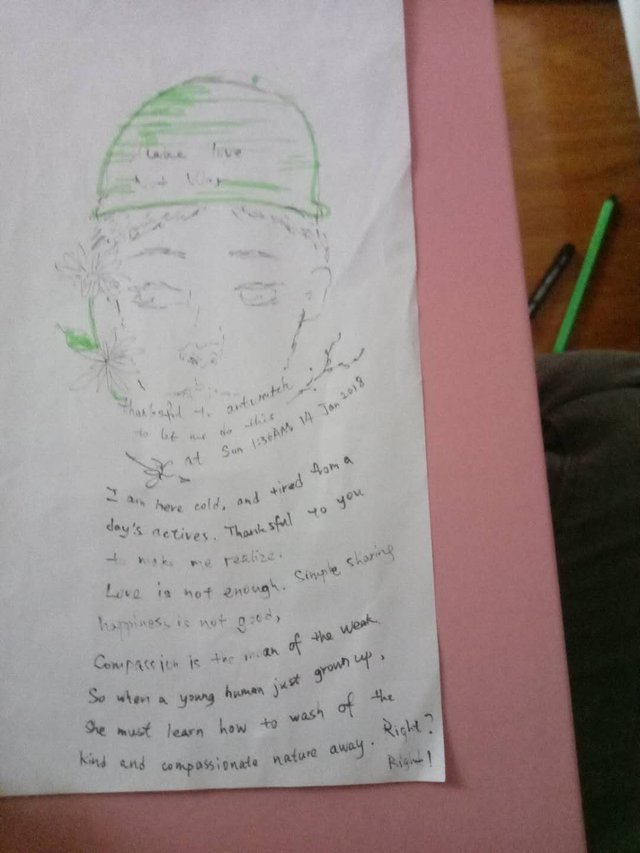 love
Thanksful to artwitch
to let me do this
at Sun 1:36AM 14 Jan 2018
I am here cold, and tired from a
day's actives. Thanksful to you
to make me realize.
Love is not enough. Simple sharing
happiness is not good,
Compassion is the mean of the weak.
So when a young human just grown up,
She must learn how to wash of the
kind and compassionate nature away. Right?
Right!